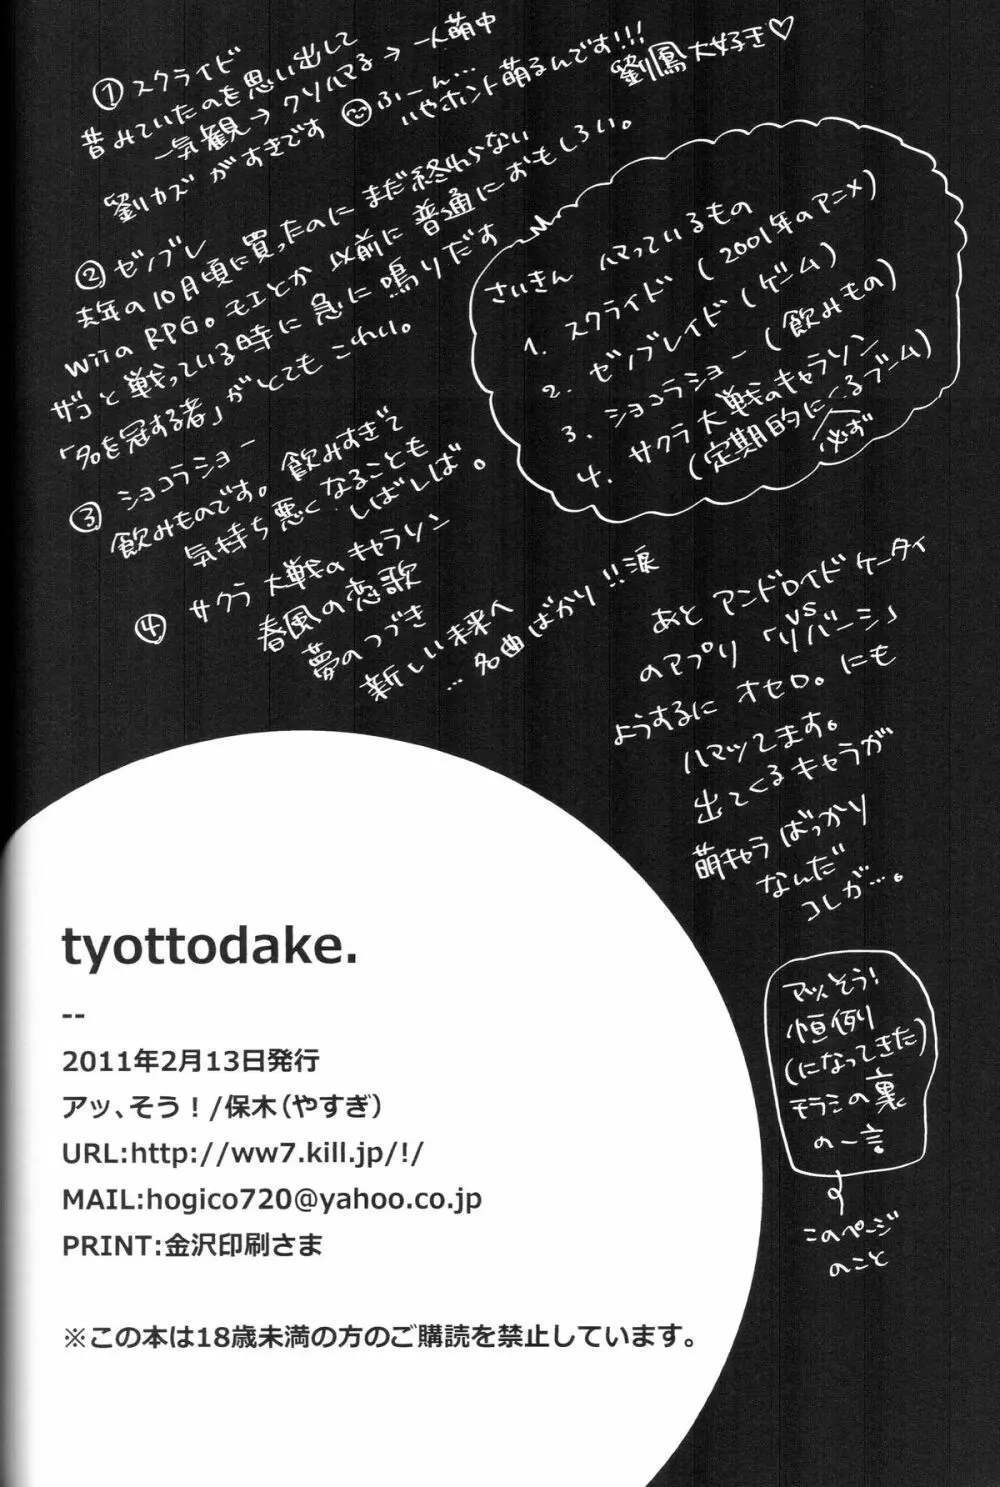 ①スクライド
昔みていたのを思い出して
一気観→クソハマる→一人萌中
劉カズがすきです ふーん…
いやホント萌るんです!!!
劉鳳大好き♡
②ゼノブレ
去年の10月頃に買ったのにまだ終わらない
wiiのRPG。モエとか以前に普通におもしろい。
ザコと戦っている時に急に鳴りだす
「名を冠する者」がとてもこわい。
③ショコラショー
飲みものです。飲みすぎて
気持ち悪くなることも
しばしば。
④サクラ大戦のキャラソン
春風の恋歌
夢のつづき
新しい未来へ
…名曲ばかり!!涙
さいきん ハマっているもの
1. スクライド(2001年のアニメ)
2. ゼノブレイド(ゲーム)
3. ショコラショー(飲みもの)
4. サクラ大戦のキャラソン
(定期的に必ずくるブーム)
あとアンドロイドケータイ
のアプリ「vsリバーシ」
ようするにオセロ。にも
ハマッてます。
出てくるキャラが
萌キャラばっかり
なんだ
コレが…。
アッ、そう!
恒例
(になってきた)
チラシの裏
の一言
このページ
のこと
tyottodake.
--
2011年2月13日発行
アッ、そう！/保木（やすぎ）
URL:http://ww7.kill.jp/!/
MAIL:hogico720@yahoo.co.jp
PRINT:金沢印刷さま
※この本は18歳未満の方のご購読を禁止しています。